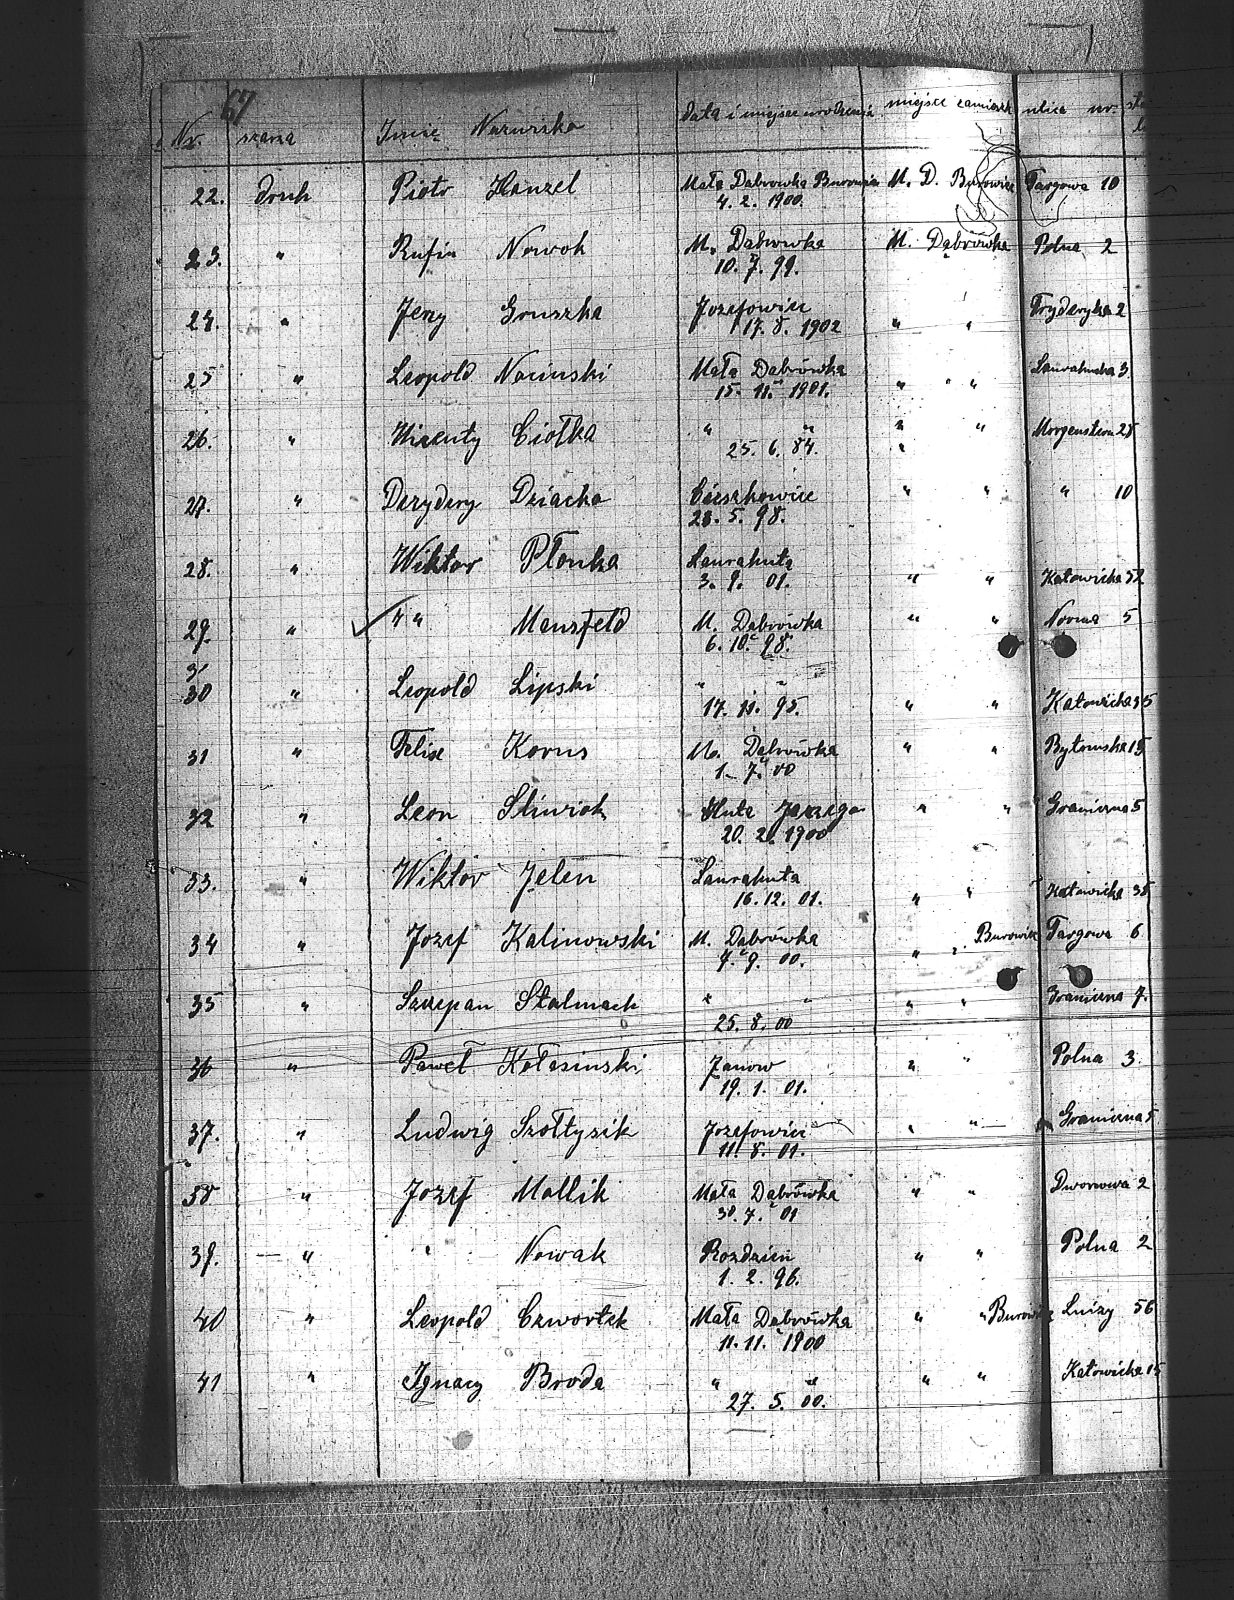 67
Nr. szarża Imię Nazwisko Data i miejsce urodzenia miejsce zamieszk ulica nr.
22. druh Piotr Hanzel Mała Dąbrowka Burowiec M. D. Burowiec Targowa 10
4. 2. 1900.
23. " Rufin Nowok M. Dąbrowka M. Dąbrówka Polna 2
10. 7. 99.
24. " Jerzy Gruszka Jozefowiec " " Fryderyka 2
17. 8. 1902
25 " Leopold Nocinski Mała Dąbrówka " " Laurahucka 3
15. 11. 1901.
26. " Wincenty Ciołka " " " " Morgenstern 28
25. 6. 84.
27. " Dezydery Dziacko Cieszkowice " " " 10
23. 5. 98.
28. " Wiktor Płonka Laurahuta " " Katowicka 52
3. 9. 01.
29. " " " Mansfeld M. Dąbrówka " " Nowa 5
6. 10. 98.
30 " Leopold Lipski " " " " Katowicka 35
17. 11. 95.
31 " Felix Korus M. Dąbrówka " " Bytomska 15
1. 7. 00
32 " Leon Sliwiok Huta Jerzego " " Graniczna 5
20. 2. 1900
33. " Wiktor Jelen Laurahuta " " Katowicka 38
16. 12. 01.
34 " Jozef Kalinowski M. Dąbrówka " " Burowiec Targowa 6
4. 9. 00.
35 " Szczepan Stalmach " " " " Graniczna 7.
25. 8. 00
36 " Paweł Kołasinski Janow " " Polna 3.
19. 1. 01.
37. " Ludwig Szołtysik Jozefowiec " " Graniczna 5
11. 8. 01.
38 " Jozef Mallik Mała Dąbrówka " " Dworowa 2
30. 7. 01
39. " " Nowak Rozdzień " " Polna 2
1. 2. 96.
40 " Leopold Czwortek Mała Dąbrówka " " Burowiec Luizy 56
11. 11. 1900
41 " Ignacy Broda " " " " Katowicka 15
27. 5. 00.